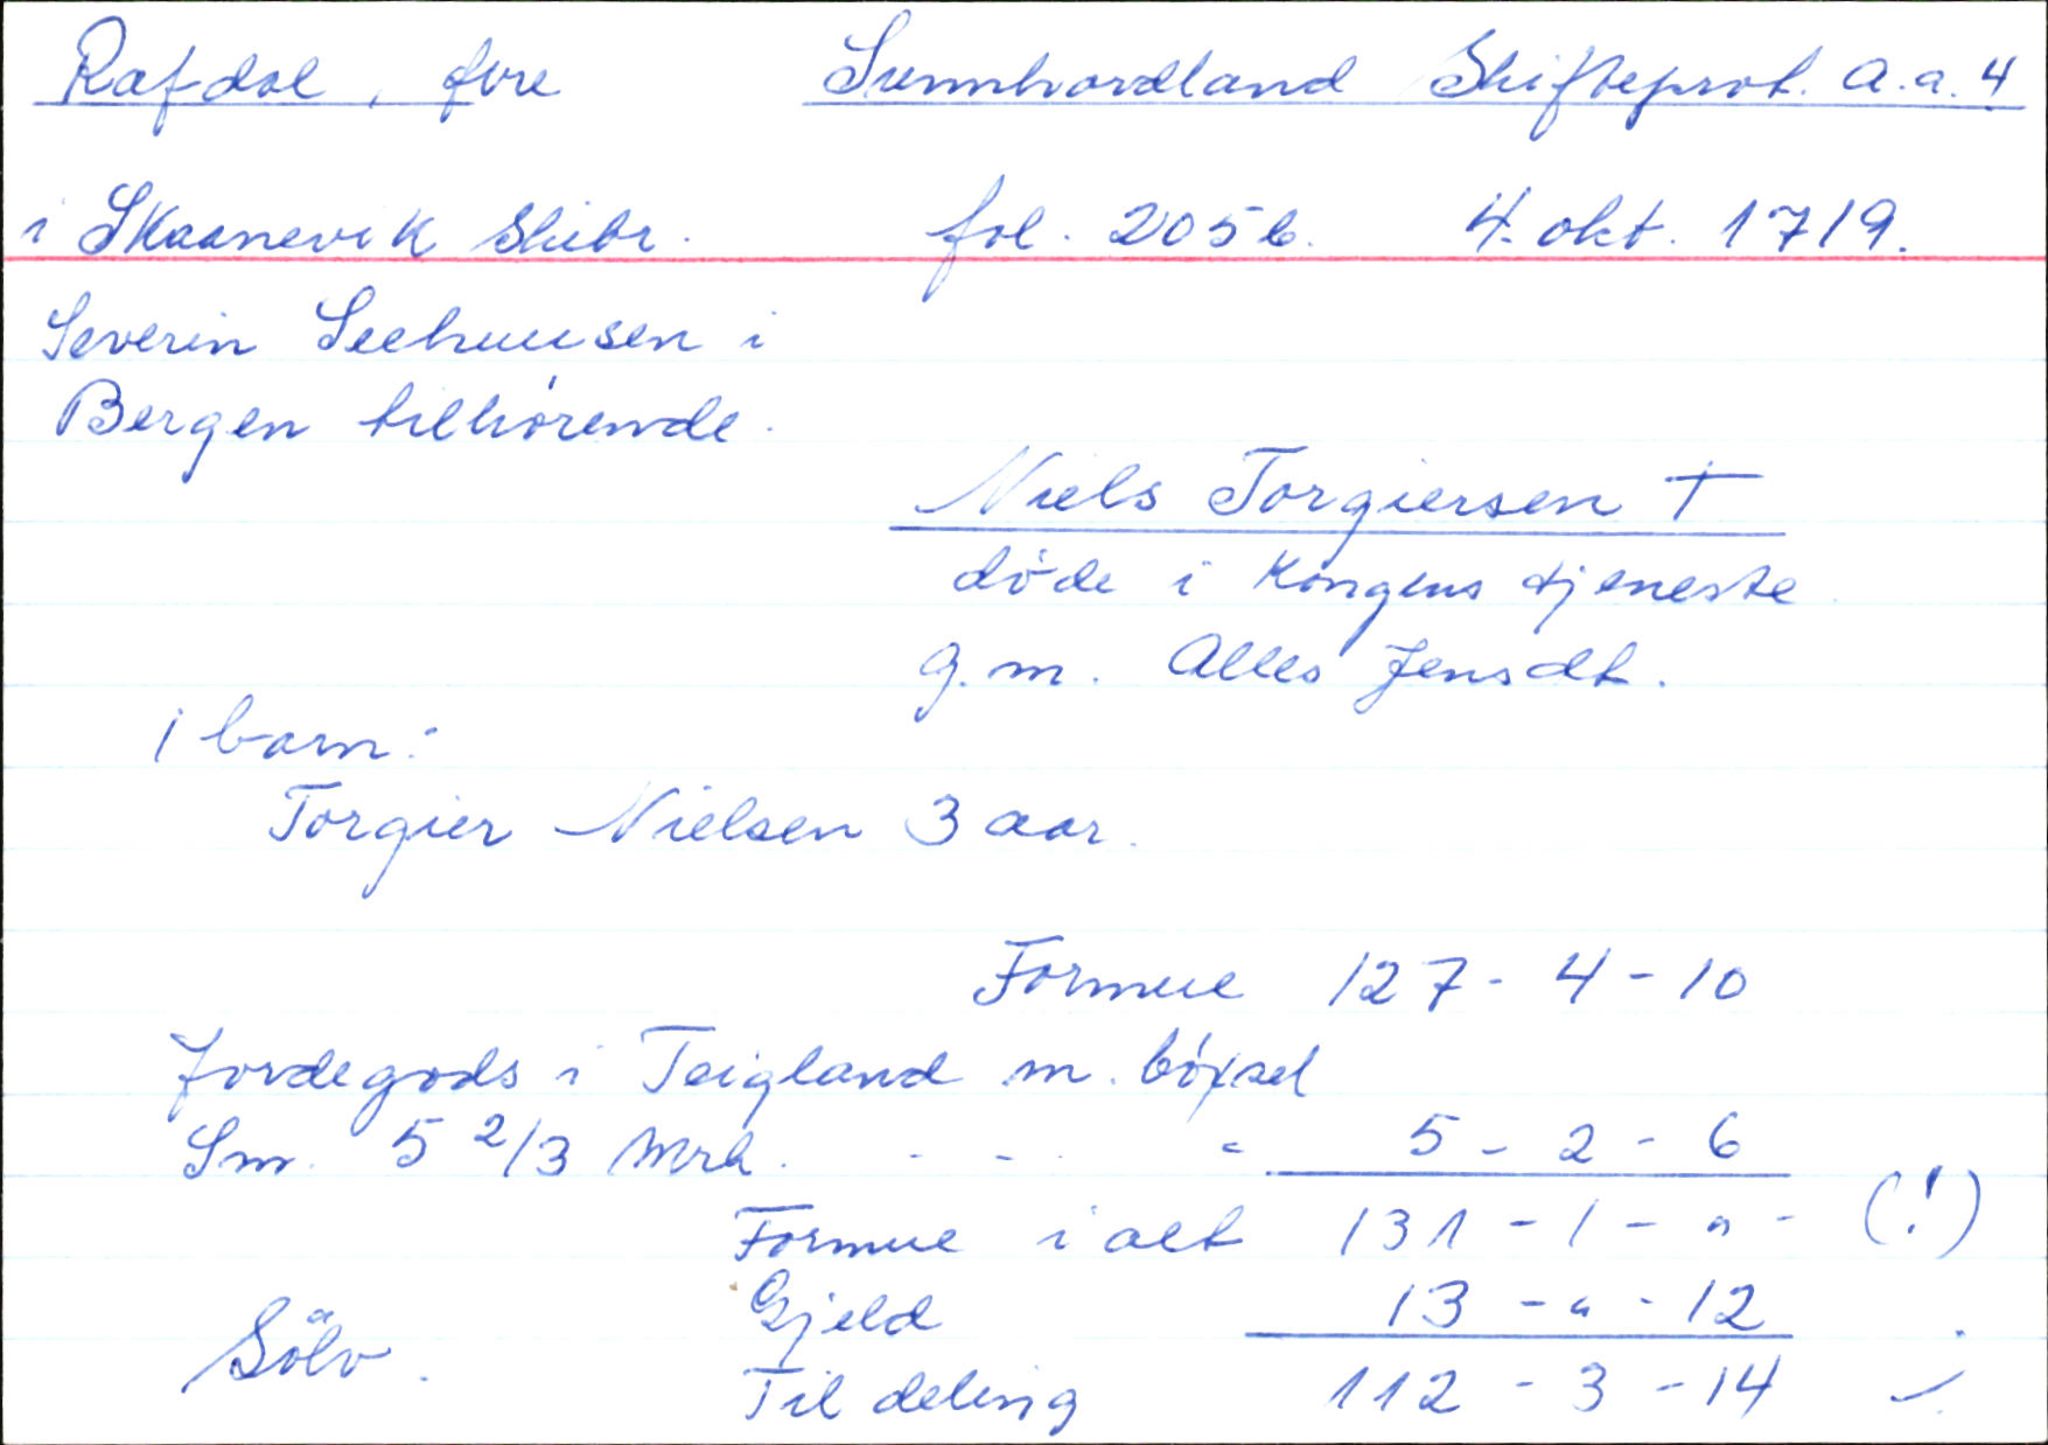 Rafdal, øvre Sunnhordland Skifteprot. A.a.4
i Skaanevik Skibr. fol. 205b. 4. okt. 1719.
Severin Seehuusen i
Bergen tilhörende.
Niels Torgiersen †
döde i Kongens tjeneste
g.m. Alles Jensdt.
1 barn:
Torgier Nielsen 3 aar.
Formue 127 - 4 - 10
Jordegods i Teigland m. böxsel
Sm. 5 2/3 Mrk. - - - " 5 - 2 - 6
Formue i alt 131 - 1 - " - (!)
Gjeld 13 - " - 12
Sölv. Til deling 112 - 3 - 14